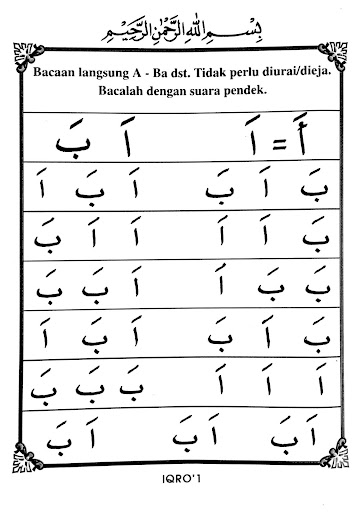 بِسْمِ اللهِ الرَّحْمٰنِ الرَّحِيْمِ
Bacaan langsung A - Ba dst. Tidak perlu diurai/dieja.
Bacalah dengan suara pendek.
أَ = اَ اَ بَ
بَ اَ بَ اَ بَ اَ
بَ اَ اَ اَ اَ بَ
بَ بَ اَ اَ بَ بَ
بَ اَ بَ اَ بَ اَ
اَ اَ اَ بَ بَ بَ
اَ بَ اَ بَ اَ بَ
IQRO'1